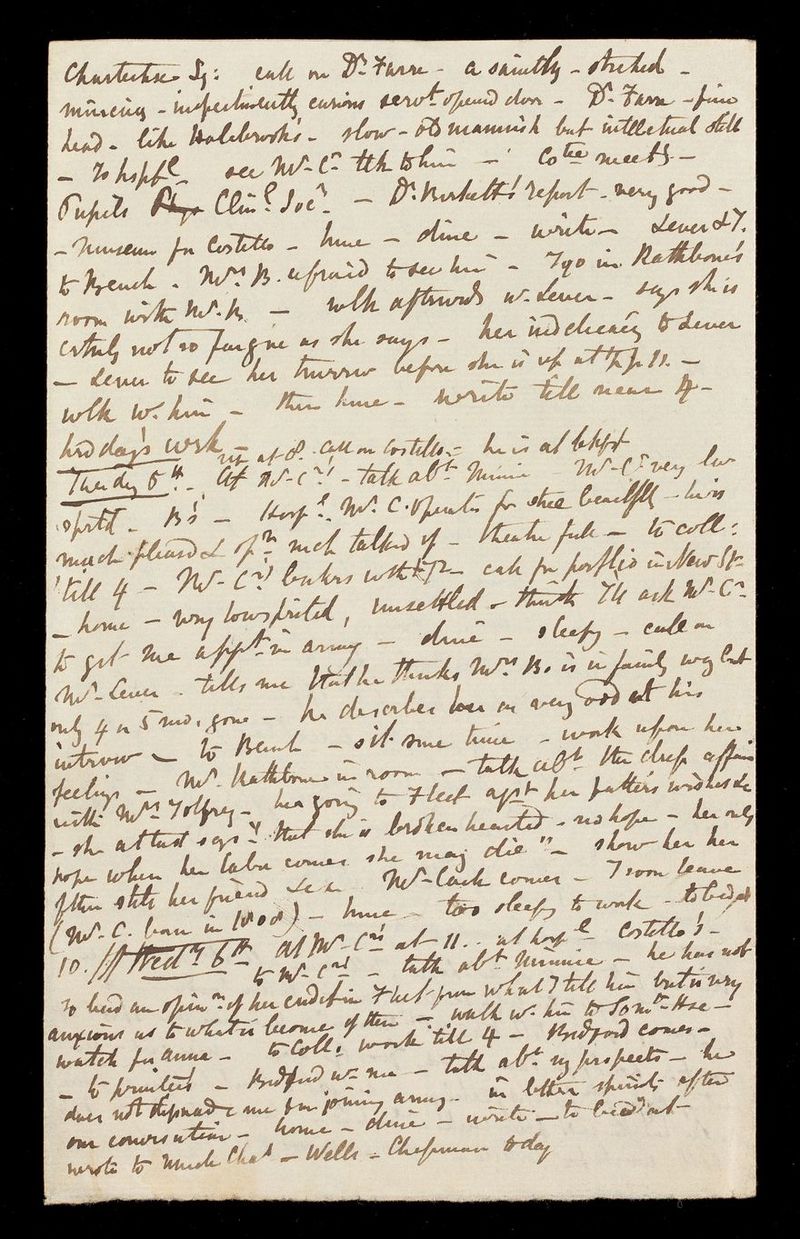 Charterhse Sq: call on Dr. Farre - a saintly - starched -
mincing - impertinently curious servt. opened door - Dr. Farre - fine
head - like Holebrook's - slow - old mannish but intellectual still
- To hspl. see Mr. Cr. tlk to him - Cotee meetg. -
Pupils Clinl. Socy. - Dr. Birkett's report - very good -
- Museum for Costello - home - dine - write - Lever & I
to Bench - Mrs. B. afraid to see him - I go in Rathbone's
room with Mr. R. - walk afterwds w. Lever - says she is
certnly not so far gone as she says - her indelicacy to Lever
- Lever to see her tmrrow before she is up at 1/2 p. 11. -
wlk w. him - then home - write till near 4 -
hrd day's wrk -
Tuesday 5th. - rise at 8. call on Costello - he is at
At Mr. Cr's. - talk abt. Minnie - Mr. Cr. very low
sprtd - B's - Hospl. Mr. C. operates for stne beautflly - he is
much pleased & opn. mch talked of - theatre full - to coll:
till 4 - Mr. Cr's with - call for portflio in New St.
- home - very low spirited, unsettled - think I'll ask Mr. Cr.
to get me appt. in army - dine - sleepy - call on
Mr. Lever - tells me that he thinks Mrs. B. is in family way but
only 4 or 5 mos. gone - he describes her as very odd at his
intrvw - to Bench - sit some time - work upon her
feelings - Mr. Rathbone in room - talk abt. the affair
with Mrs. Tolfrey - her going to Fleet agst. her father's wishes &c
- she at last says "that she is broken hearted - no hope - her only
hope when her labor comes she may die" - show her her
often stte her friend &c &c Mr. Cash comes - I soon leave
(Mr. C. born in 1808) - home - too sleepy to work - to bed at
10. // Wedy. 6th At Mr. Cr's at 11. at hospl Costello's -
to Mr. Crs. - talk abt. Minnie - he has not
so bad an opinn. of her endct in Fleet from what I tell him but is very
anxious as to what is become of then - walk w. him to Somt. Hse -
watch for Anna - to Coll: work till 4 - Bedford comes -
- to printers - Bedford w. me - talk abt. my prospects - he
does not dissuade me from joining army - in better spirits after
our conversation - home - dine - write - to bed at
wrote to Chas - Wells - Chapman today